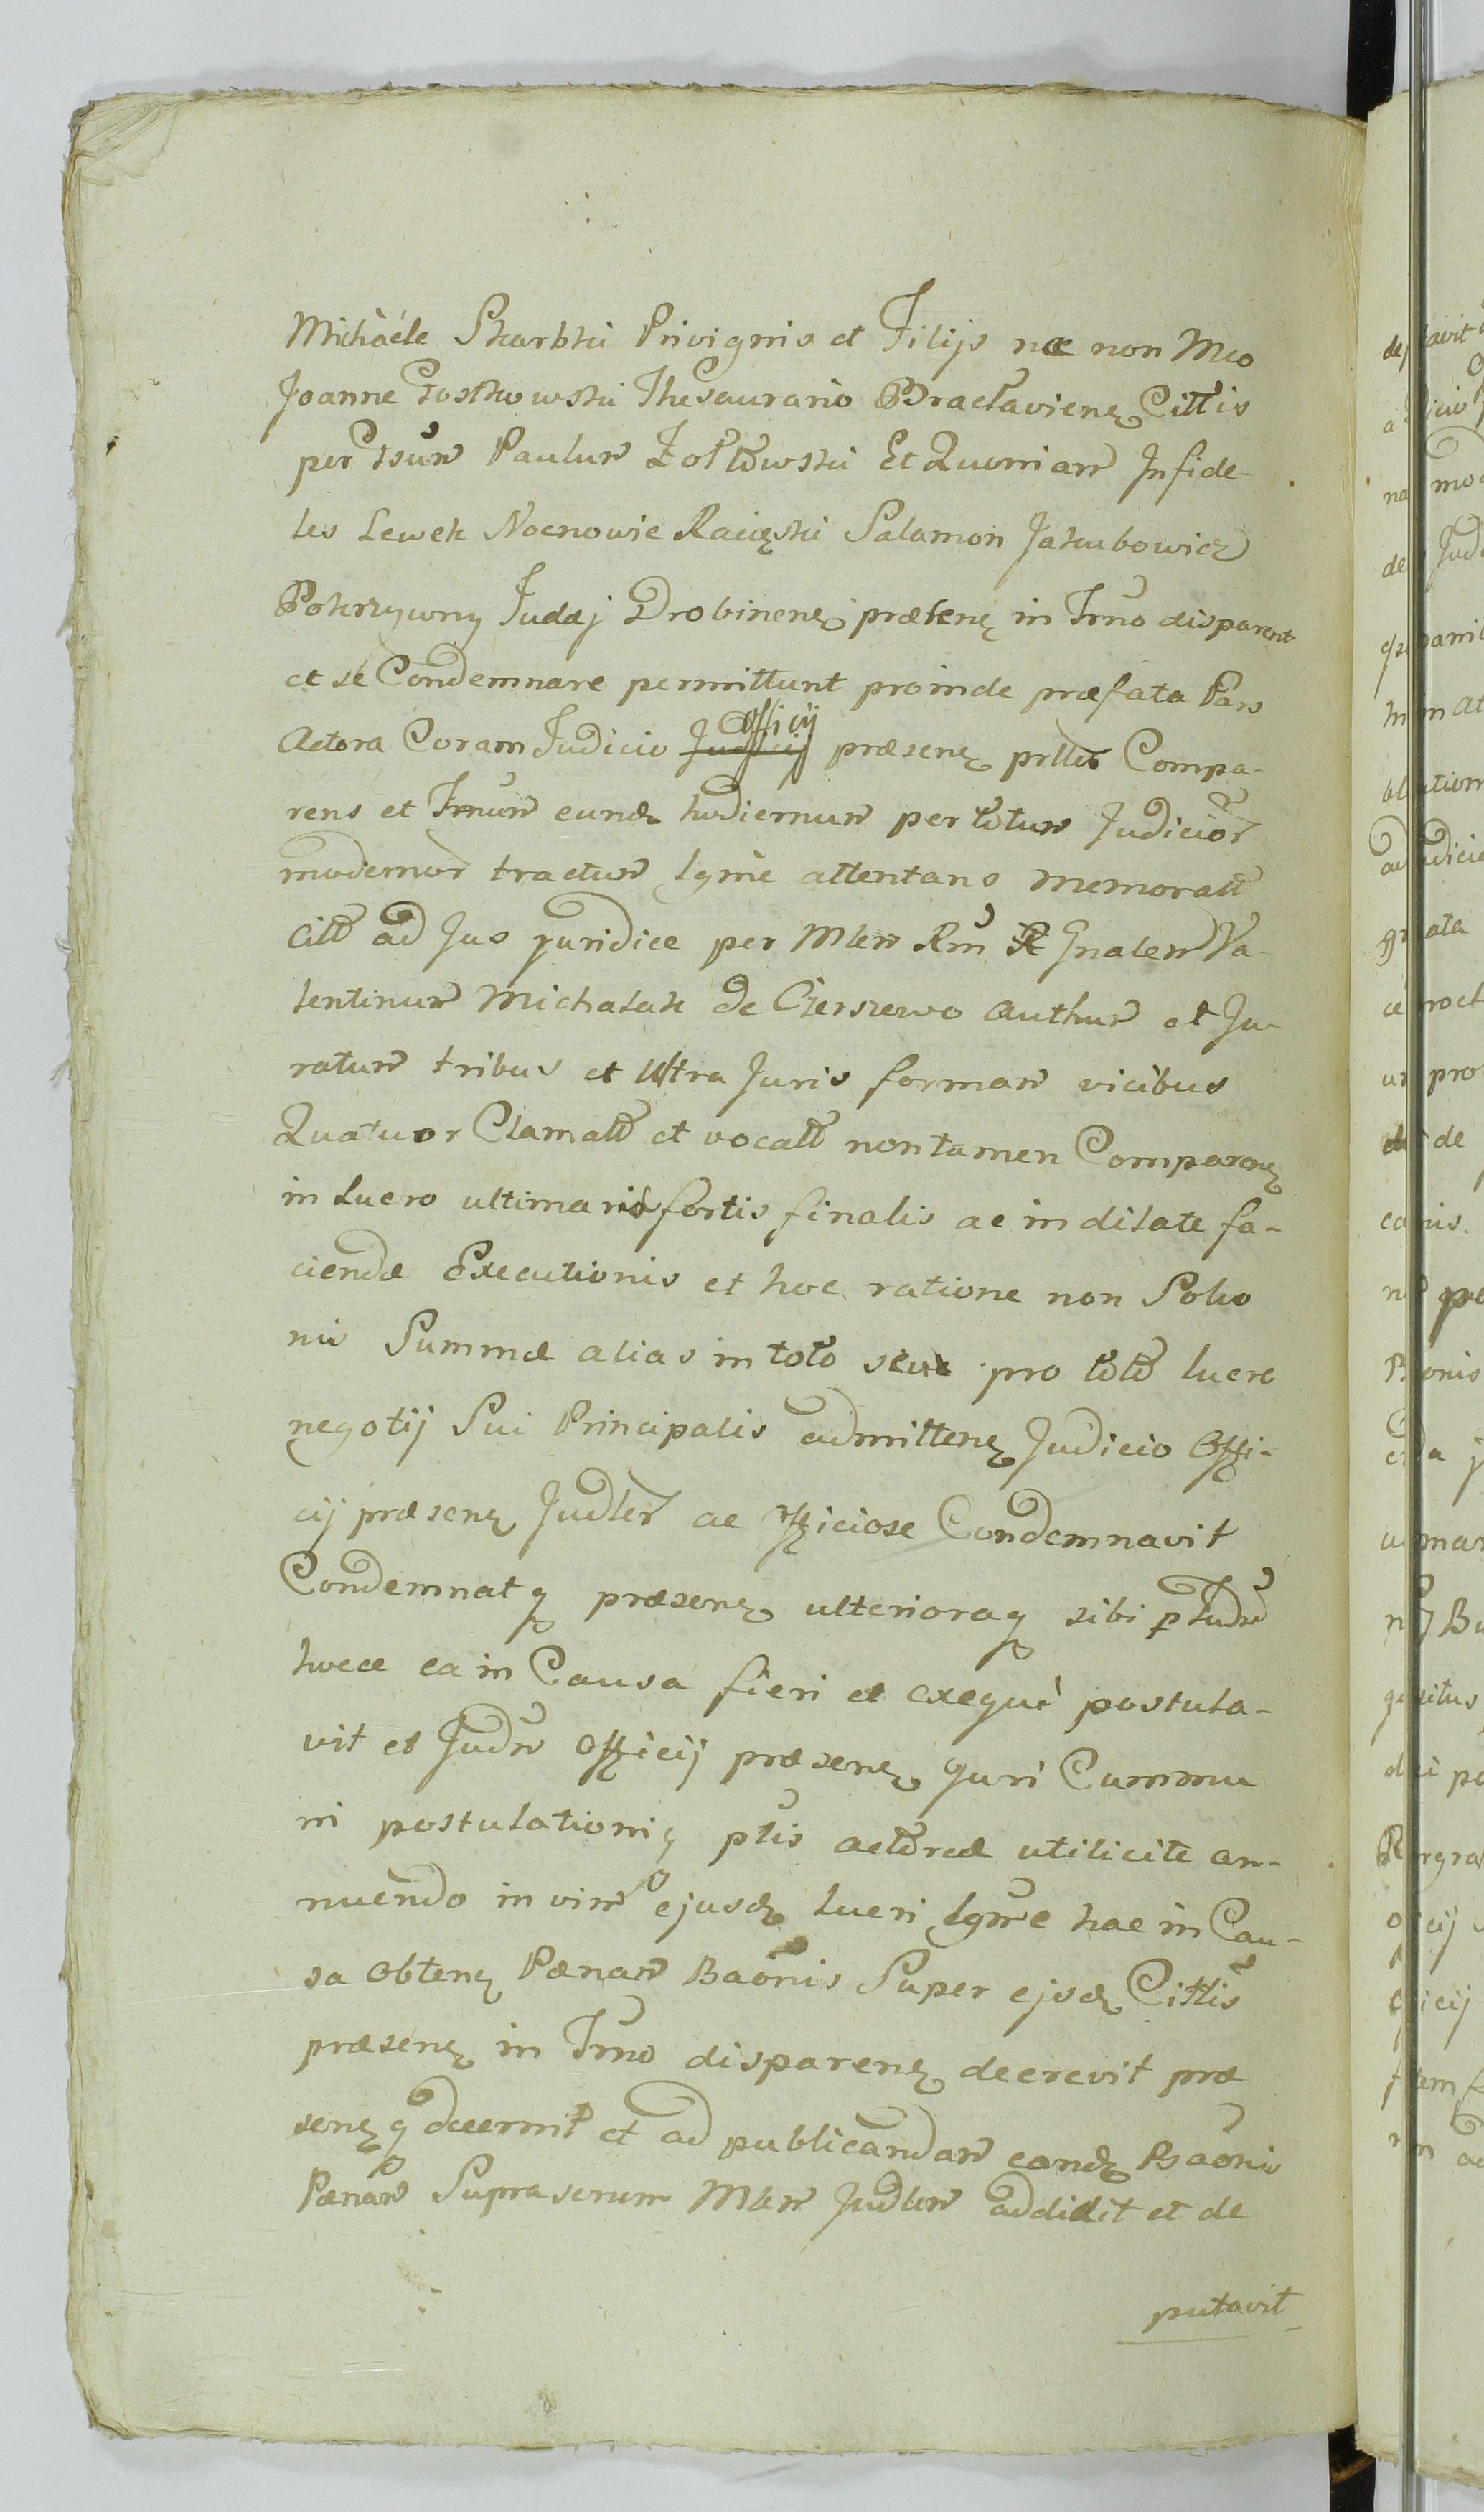 Michaele Skarbki Privignis et Filijs nec non Mco
Joanne Gostkowski Thesaurario Bracłaviens Cittis
per Gsum Paulum Żołtowski Et Quoniam Infide-
les Lewek Nocnowic Raciąski Salamon Jakubowicz
Pokrzywny Judæj Drobinens prætens in Trno disparent
et se Condemnare permittunt proinde præfata Pars
Actora Coram Judicio Officij præsens prltr Compa-
rens et Trnum eund hodiernum per totum Judicior
modernor tractum lgme attentans memoratt
Citt ad Jus juridice per Mlem Rm R Gnalem Va-
lentinum Michalak de Cierszewo Authum et Ju-
ratum tribus et Ultra Juris formam vicibus
Quatuor Clamatt et vocatt non tamen Comparens
in Lucro ultimariæ fortis finalis ac in dilate fa-
ciendæ Executionis et hoc ratione non Solvo
nis Summæ alias in toto seu pro toto lucro
negotij Sui Principalis admittens Judicio Offi-
cij præsens Judler ac Officiose Condemnavit
Condemnatq præsens ulterioraq sibi p Judm
hocce ea in Causa fieri et exequi postula-
vit et Judm Officij præsens Juri Commu
ni postulationiq ptis actoreæ utilicite an-
nuendo in vim ejusd lucri lgme hac in Cau-
sa Obtens Pænam Baonis Super ejsd Cittis
præsens in Trno disparens decrevit præ
sensq decernit et ad publicandam eand Baonis
Pænam Suprascrum Mlem Judlem addidit et de
putavit